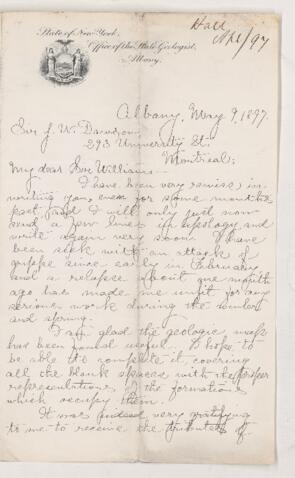 Hall
Apl/97
State of New York.
Office of the State Geologist,
Albany.
Albany, May 9, 1897.
Sir J. W. Dawson,
293 University St.
Montreal;
My dear Sir William:—
I have been very remiss in
writing you, even for some months
past, and I will only just now
send a few lines in apology and
write again very soon. I have
been sick with an attack of
grippe since early in February
and a relapse about one month
ago has made me unfit for any
serious work during the winter
and spring.
I am glad the geologic map
has been found useful. I hope to
be able to complete it, covering
all the blank spaces with the proper
representations of the formations
which occupy them.
It was indeed very gratifying
to me to receive the tributes of